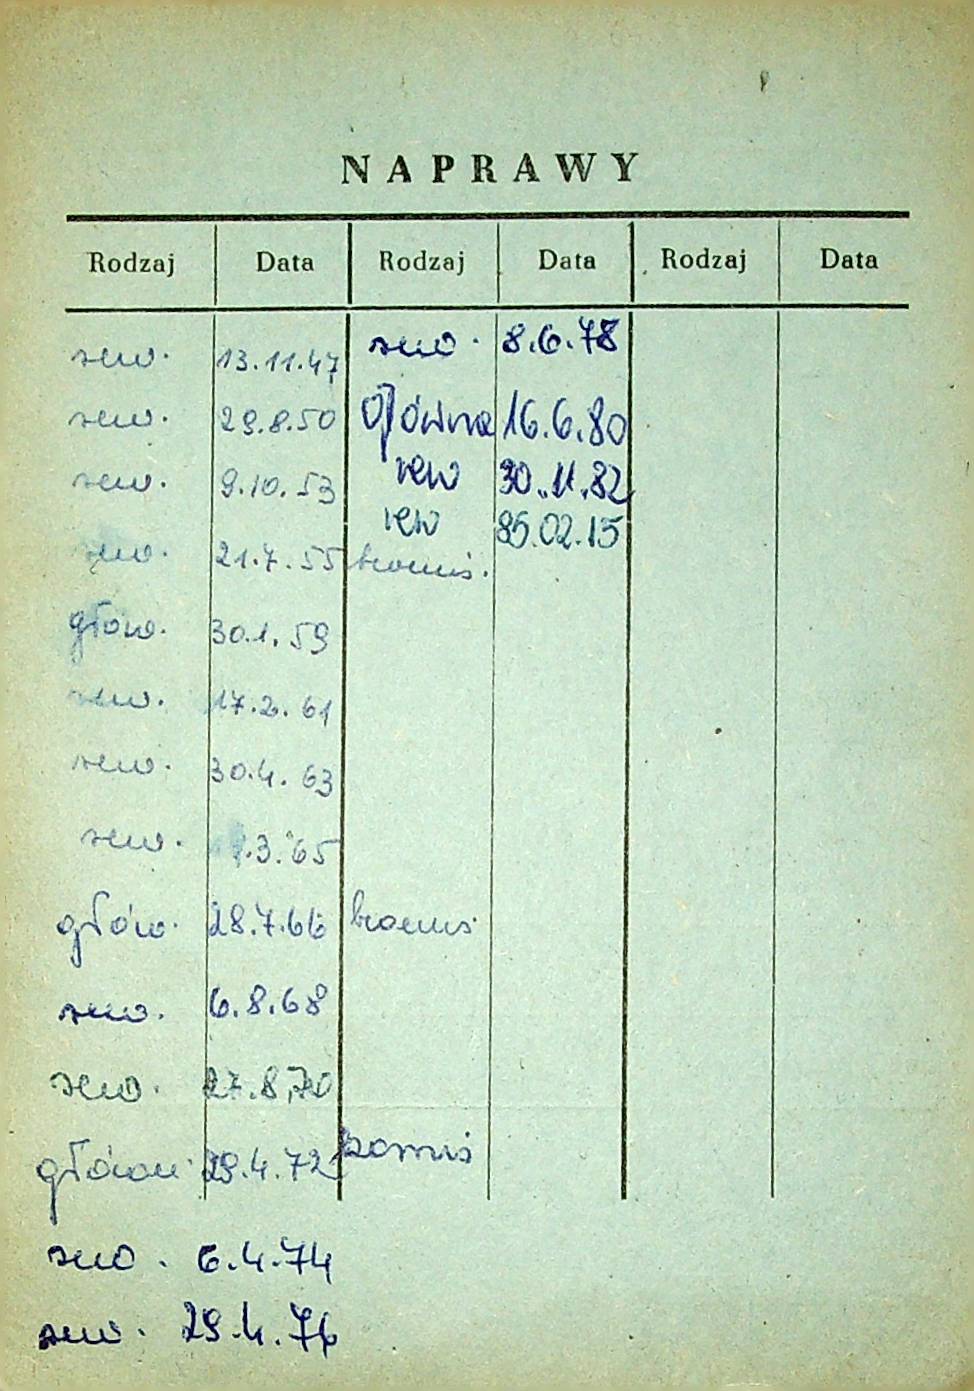 NAPRAWY
Rodzaj Data Rodzaj Data Rodzaj Data
rew. 13.11.47 rew. 8.6.78
rew. 29.8.50 Główna 16.6.80
rew. 9.10.53 rew 30.11.82
rew 85.02.15
rew. 21.7.55
głów. 30.1.59
rew. 17.2.61
rew. 30.4.63
rew. .3.65
głów. 28.7.66
rew. 6.8.68
rew. 27.8.70
29.4.72
rew. 6.4.74
rew. 29.4.76